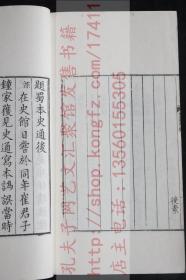 題蜀本史通後
深在史館日嘗於同年崔君子
鍾家獲見史通寫本訛誤當時
後集
孔夫子两艺文汇聚馆发售书籍
http://shop.kongfz.com/17411
店主电话：13560155305